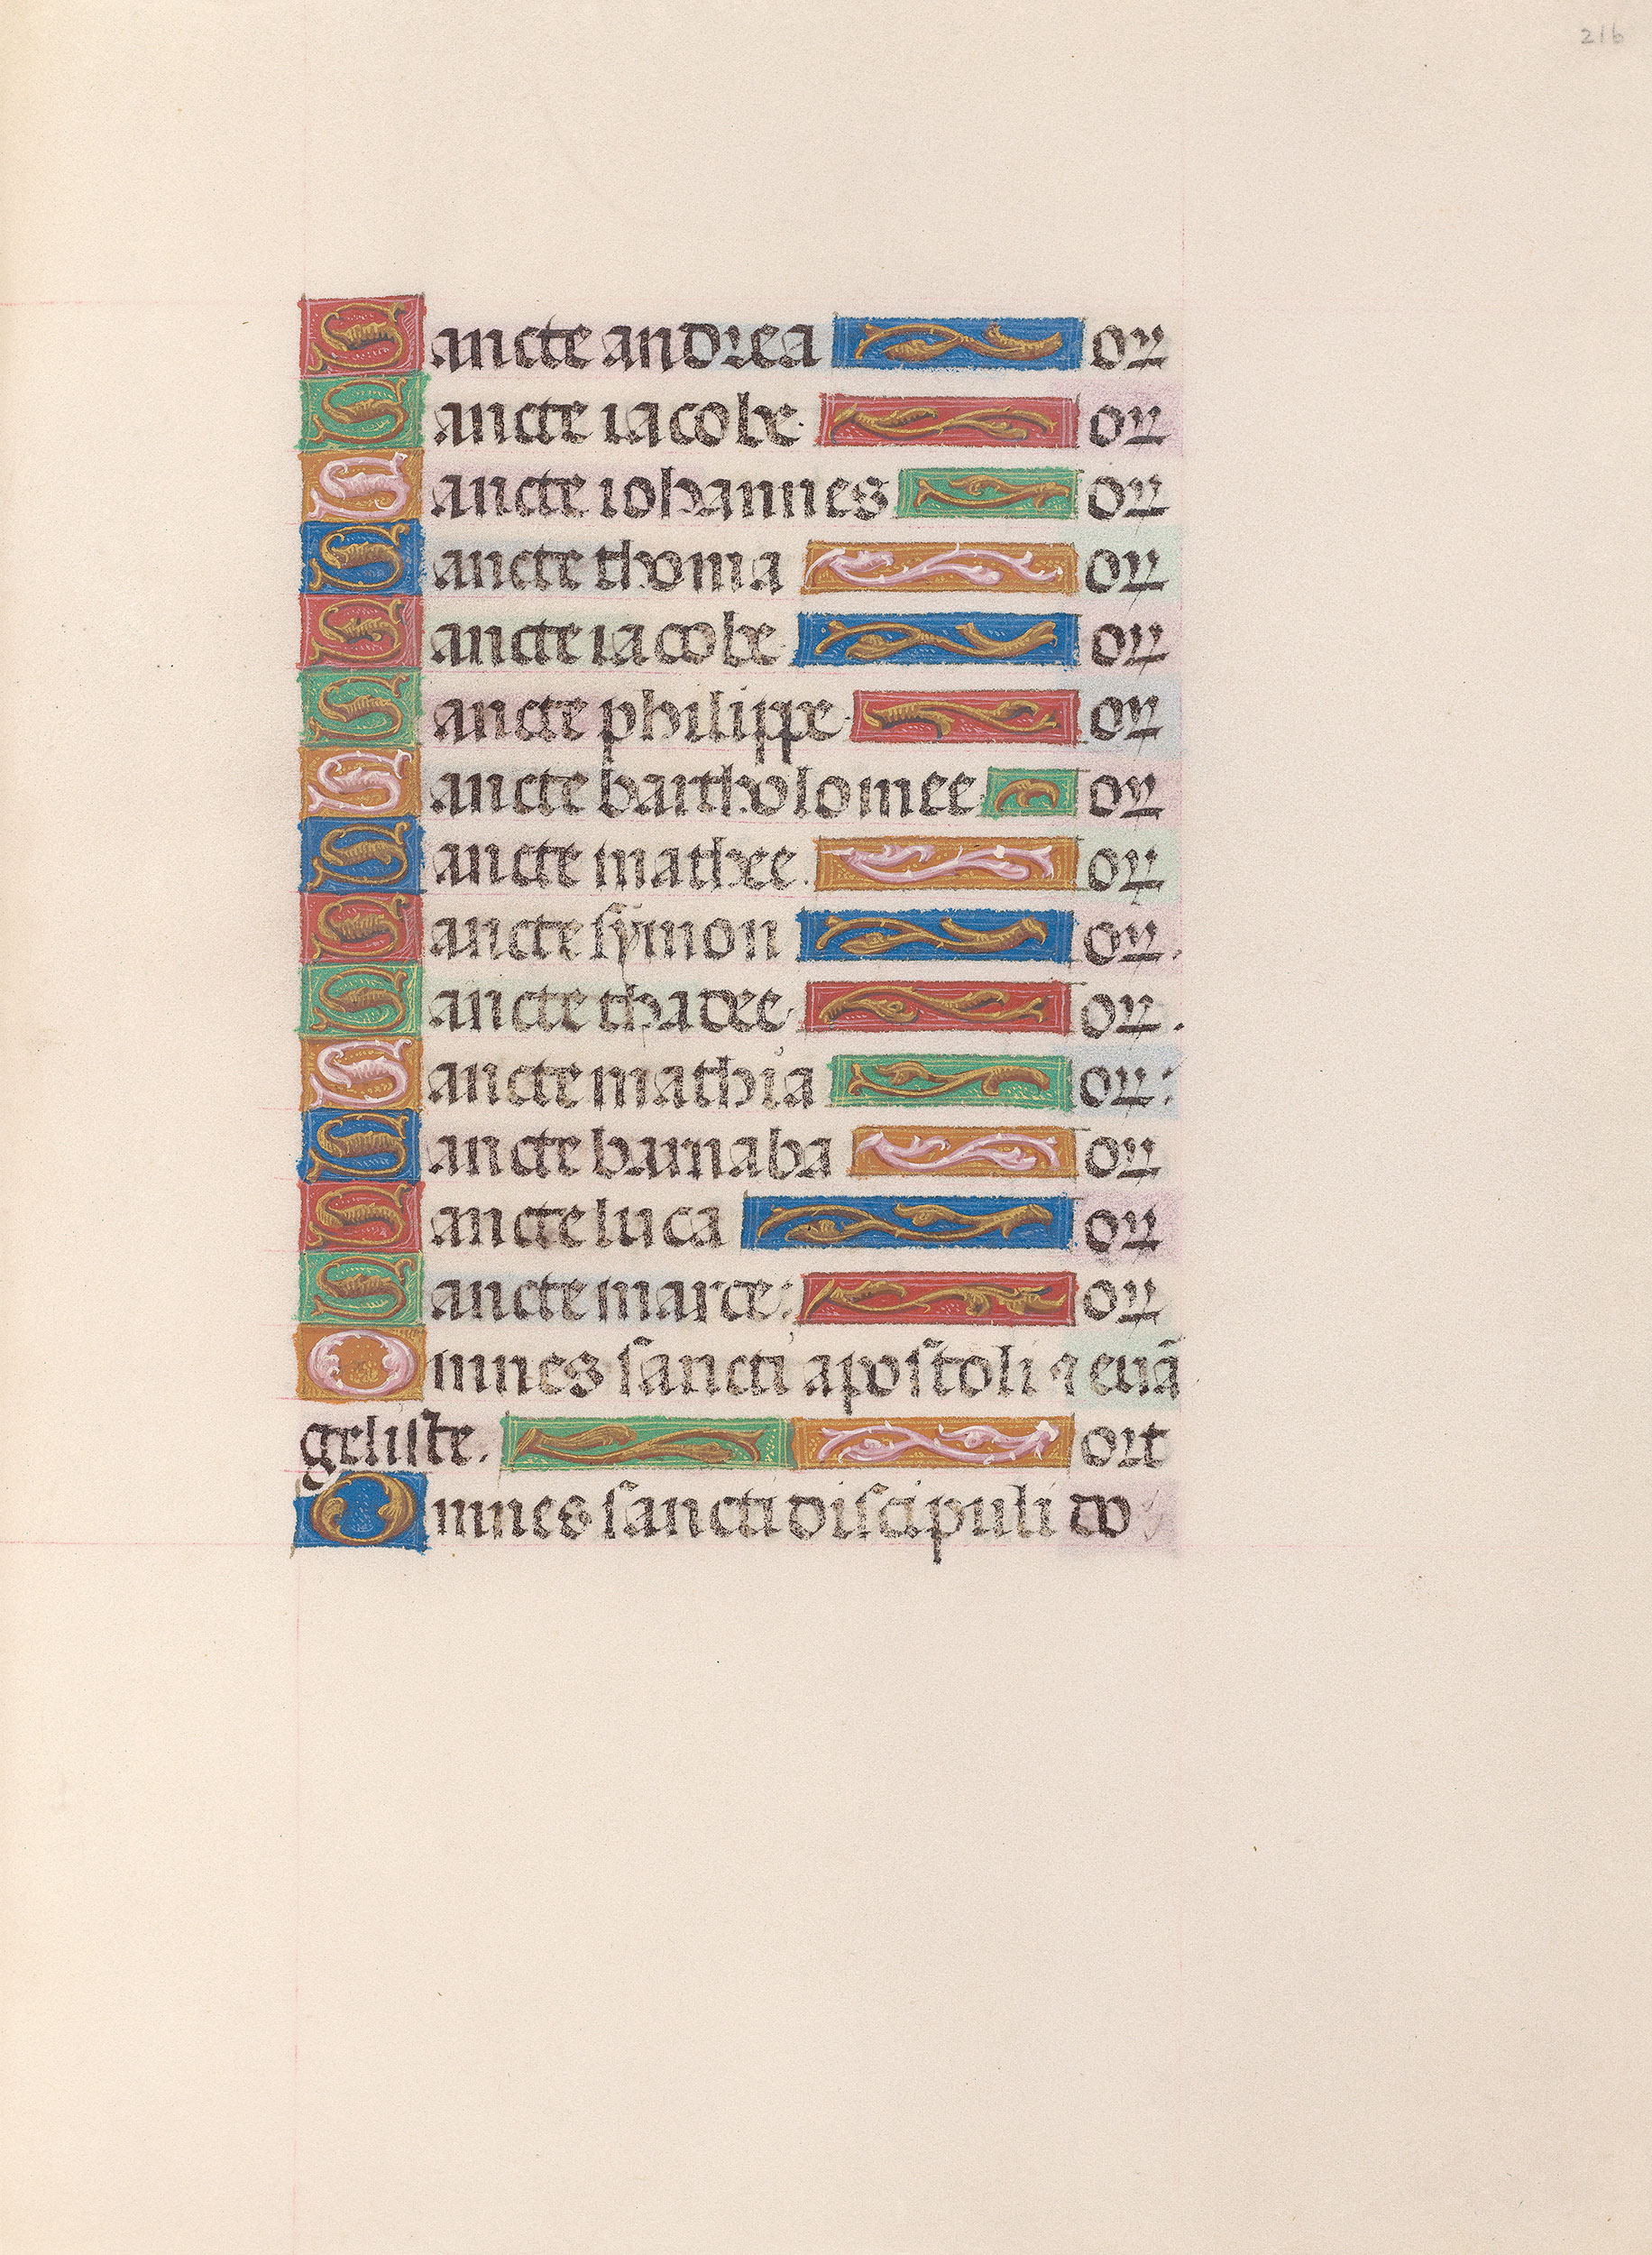 216
Sancte andrea or
Sancte iacobe. or
Sancte iohannes or
Sancte thoma or
Sancte iacobe or
Sancte philippe. or
Sancte bartholomee or
Sancte mathee. or
Sancte symon or.
Sancte thadee or.
Sancte mathia or:
Sancte barnaba or
Sancte luca or
Sancte marce: or
Omnes sancti apostoli ⁊ euã
geliste. ort
Omnes sancti discipuli do